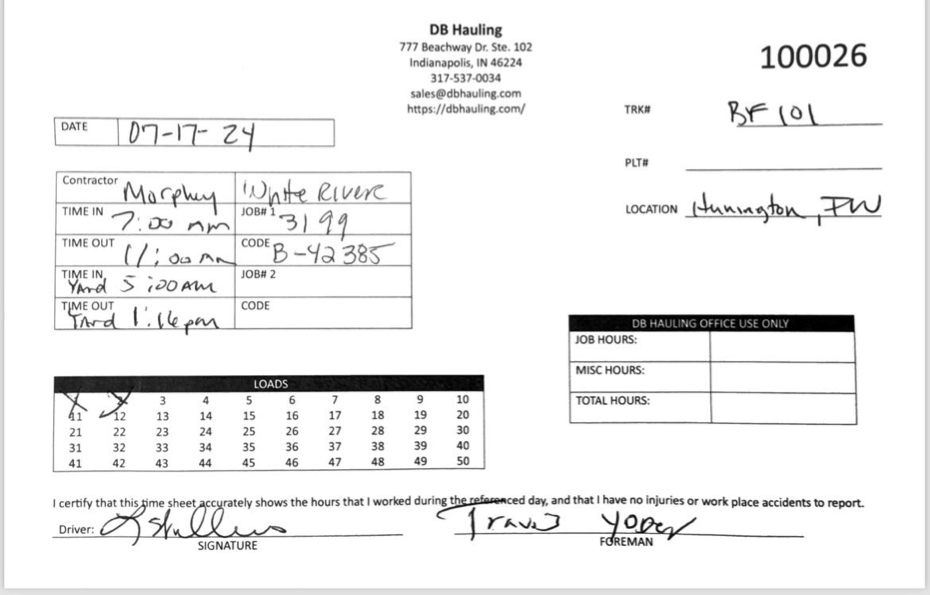 DB Hauling
777 Beachway Dr. Ste. 102
Indianapolis, IN 46224
317-537-0034
sales@dbhauling.com
https://dbhauling.com/
100026
TRK# BF 101
DATE 07-17-24
PLT#
Contractor Morphey White Rivere
LOCATION Hunington, IN
TIME IN 7:00 am JOB# 1 3199
TIME OUT 11:00 AM CODE B-42385
TIME IN Yard 5:00 AM JOB# 2
TIME OUT Yard 1:16 pm CODE
DB HAULING OFFICE USE ONLY
JOB HOURS:
MISC HOURS:
TOTAL HOURS:
LOADS
3 4 5 6 7 8 9 10
11 12 13 14 15 16 17 18 19 20
21 22 23 24 25 26 27 28 29 30
31 32 33 34 35 36 37 38 39 40
41 42 43 44 45 46 47 48 49 50
I certify that this time sheet accurately shows the hours that I worked during the referenced day, and that I have no injuries or work place accidents to report.
Driver: Travis Yoder
SIGNATURE FOREMAN